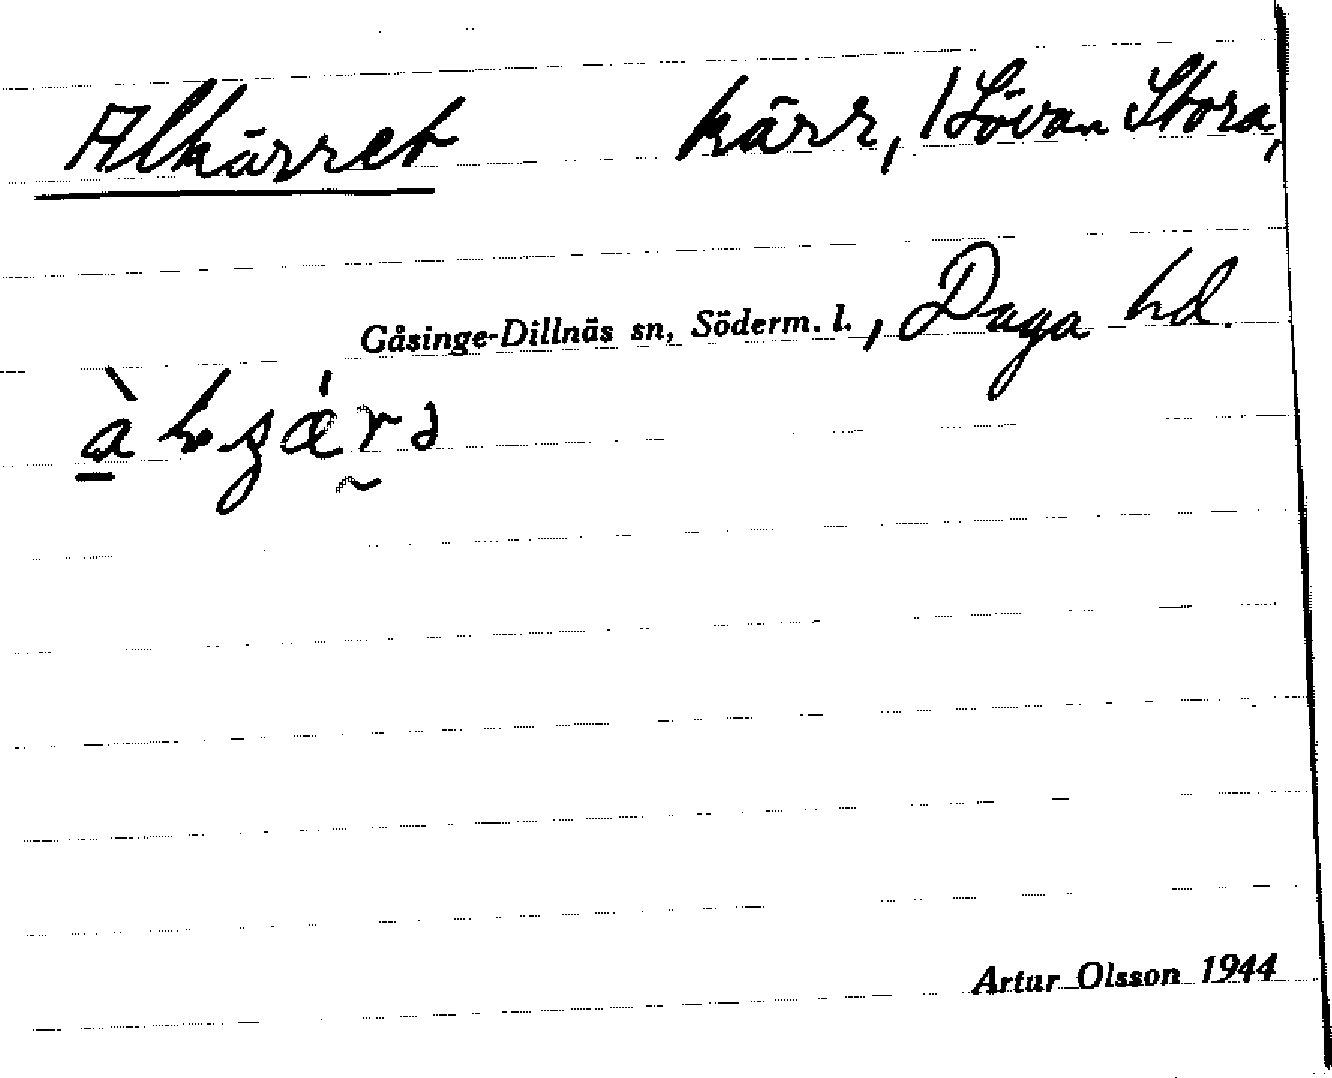 Alkärret kärr, /Lövan Stora,
Gåsinge-Dillnäs sn, Söderm. l., Daga hd.
Artur Olsson 1944